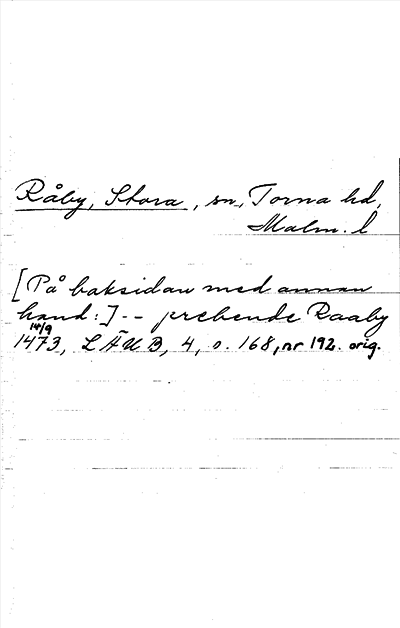 Råby, Stora, sn, Torna hd,
Malm. l
[På baksidan med annan
hand:] -- prebende Raaby
14/9
1473, LÄUB, 4, s. 168, nr 192. orig.